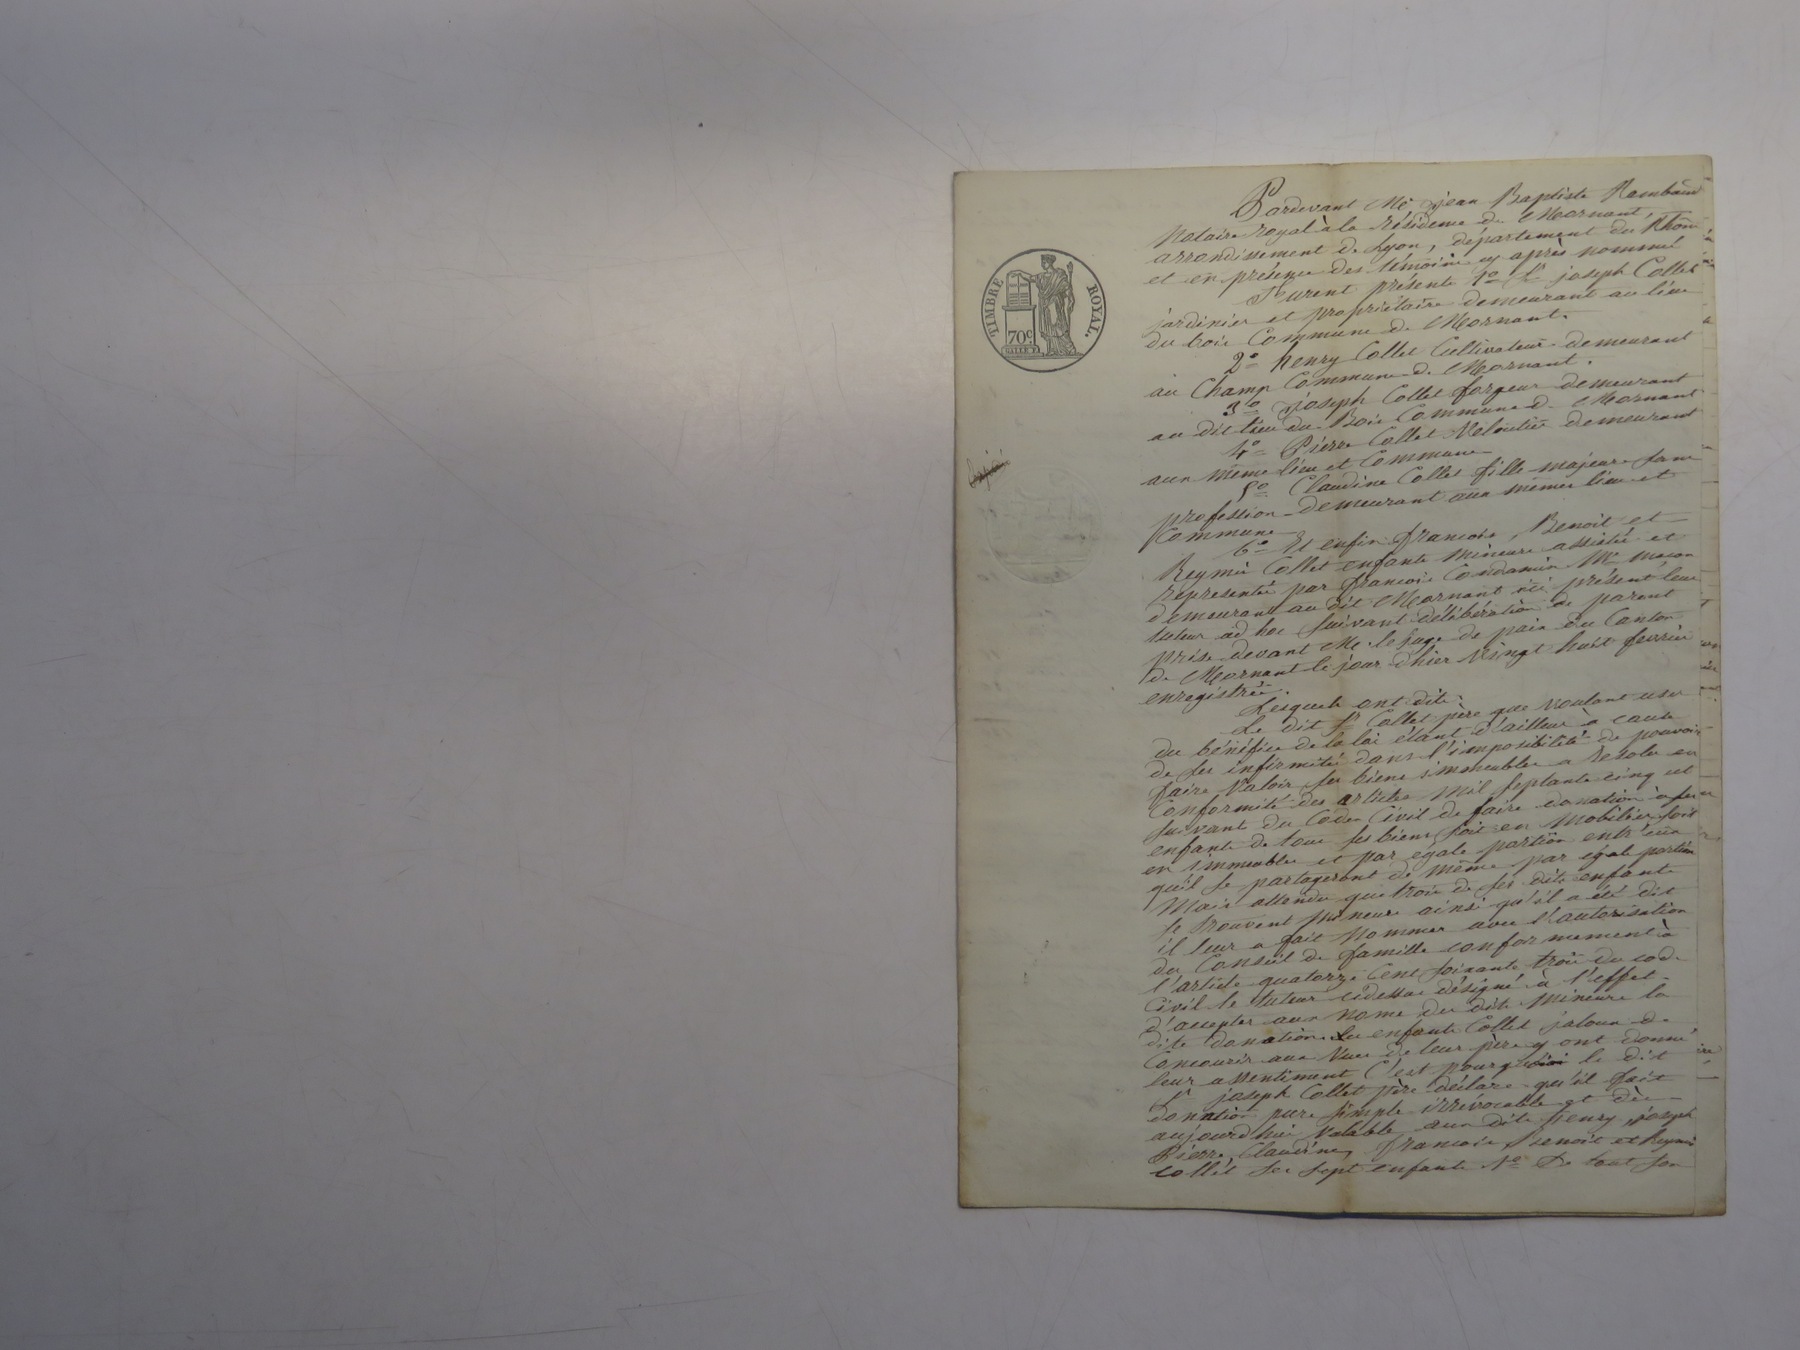 TIMBRE ROYAL.
70c
Pardevant Me jean Baptiste Rambaud
Notaire royal à la résidence de Mornant,
arrondissement de Lyon, département du Rhône
et en présence des témoins cy après nommés
Furent présents 1o Sr joseph Collet
jardinier et propriétaire demeurant au lieu
du bois Commune de Mornant.
2o henry Collet Cultivateur demeurant
au Champ Commune de Mornant.
3o joseph Collet forgeur demeurant
au dit lieu du Bois Commune de Mornant
4o Pierre Collet Veloutier demeurant
aux même lieu et Commune
5o Claudine Collet fille majeure sans
profession demeurant aux mêmes lieu et
Commune
6o Et enfin francois, Benoit et
Reymé Collet enfants mineurs assistés et
représentés par francois Condamin Me macon
demeurant au dit Mornant ici présent leur
tuteur ad hoc suivant délibération de parent
prise devant Me le juge de paix du Canton
de Mornant le jour d'hier vingt huit fevrier
enregistrée.
Lesquels ont dit:
Le dit Sr Collet père que voulant user
du bénéfice de la loi étant d'ailleur à cause
de ses infirmités dans l'imposibilité de pouvoir
faire valoir ses biens immeubles a résolu en
Conformité des articles mil septante cinq et
suivant du Code Civil de faire donation à ses
enfants de tous ses biens soit en mobilier soit
en immeubles et par égale portion entr'eux
qu'il se partageront de même par égale portion
Mais attendu que trois de ses dits enfants
se trouvent mineurs ainsi qu'il a été dit
il leur a fait nommer avec l'autorisation
du Conseil de famille conformement à
l'article quatorze Cent soixante trois du code
Civil le tuteur cidessus désigné à l'effet
d'accepter aux noms des dits mineurs la
dite donation. Les enfants Collet jaloux de
Concourir aux vues de leur père y ont donné
leur assentiment C'est pourquoi le dit
Sr joseph Collet père déclare qu'il fait
donation pure simple irrévocable et dès
aujourd'hui valable aux dits henry, joseph
Pierre, Claudine, francois, Benoit et Reymé
Collet ses sept enfants 1o De tout son